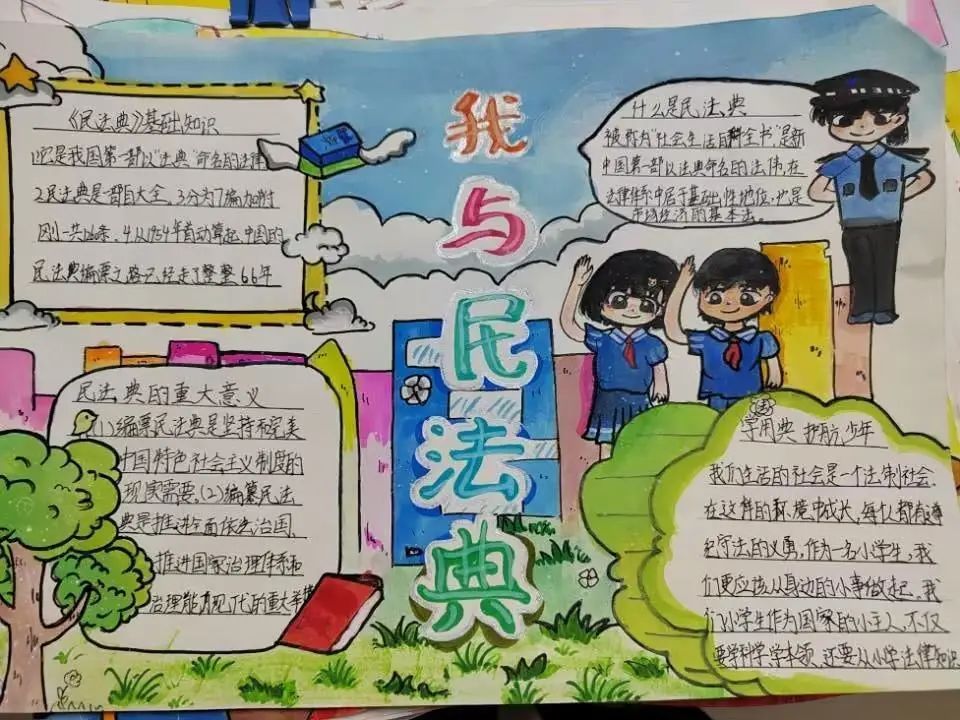 我与民法典
《民法典》基础知识
1.它是我国第一部以"法典"命名的法律
2.民法典是一部百大全,3.分为7编加附
则一共1260条,4.从1954年首动算起,中国的
民法典编纂之路已经走了整整66年
什么是民法典
被称有"社会生活百科全书"是新
中国第一部以法典命名的法律,在
法律体系中居于基础性地位,也是
市场经济的基本法。
民法典的重大意义
(1)编纂民法典是坚持和完美
中国特色社会主义制度的
现家需要,(2)编纂民法
典是推进全面依法治国、
推进国家治理体系和
治理能力现代的重大举措
学用典 护航少年
我们生活的社会是一个法制社会.
在这样的环境中成长,每个人都有遵
纪守法的义务,作为一名小学生,我
们更应该从身边的小事做起,我
们小学生作为国家的小主人,不仅
要学科学,学本领,还要从小学法律知识